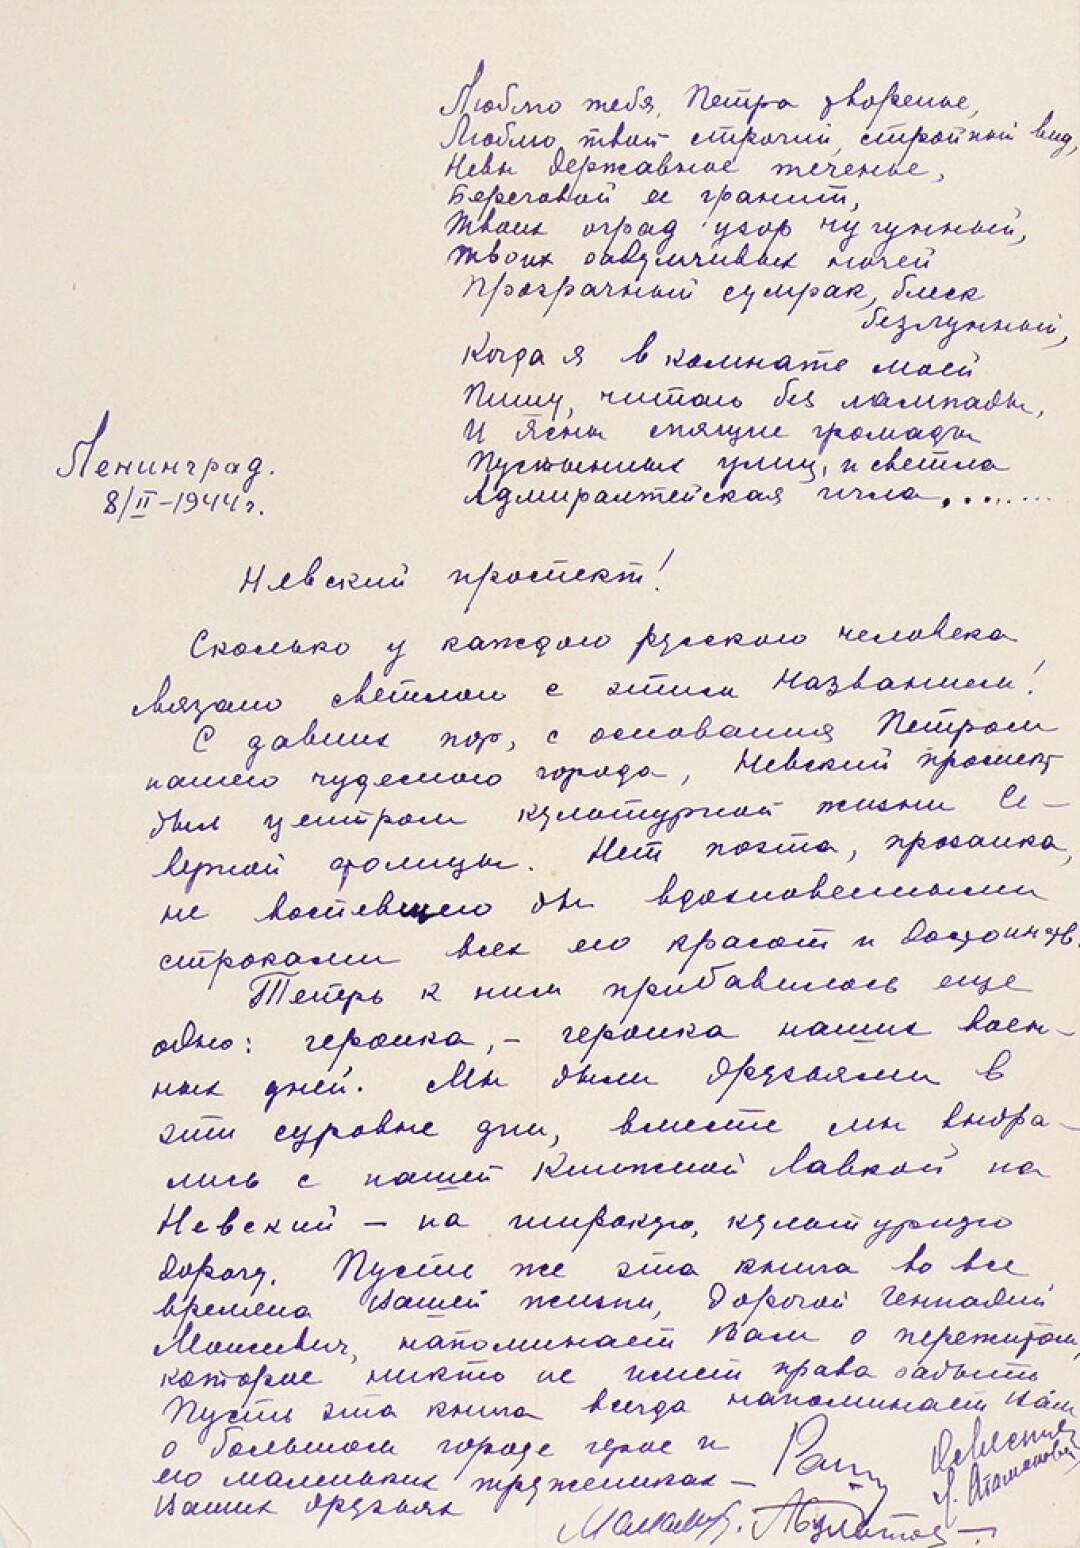 Люблю тебя, Петра творенье,
Люблю твой строгий, стройный вид,
Невы державное теченье,
Береговой ее гранит,
Твоих оград узор чугунный,
Твоих задумчивых ночей
Прозрачный сумрак, блеск
безлунный,
Когда я в комнате моей
Пишу, читаю без лампады,
И ясны спящие громады
Пустынных улиц, и светла
Адмиралтейская игла, .......
Ленинград.
8/II-1944г.
Невский проспект!
Сколько у каждого русского человека
связано светлого с этим названием!
С давних пор, с основания Петром
нашего чудесного города, Невский проспект
был центром культурной жизни Се-
верной столицы. Нет поэта, прозаика,
не воспевшего бы вдохновенными
строками всех его красот и достоинств.
Теперь к ним прибавилось еще
одно: героика, - героика наших воен-
ных дней. Мы были друзьями в
эти суровые дни, вместе мы выбра-
лись с нашей Книжной Лавкой на
Невский - на широкую, культурную
дорогу. Пусть же эта книга во все
времена Вашей жизни, дорогой Геннадий
Моисеевич, напоминает Вам о пережитом,
которое никто не имеет права забыть
Пусть эта книга всегда напоминает Вам
о большом городе герое и
его маленьких тружениках -
Ваших друзьях